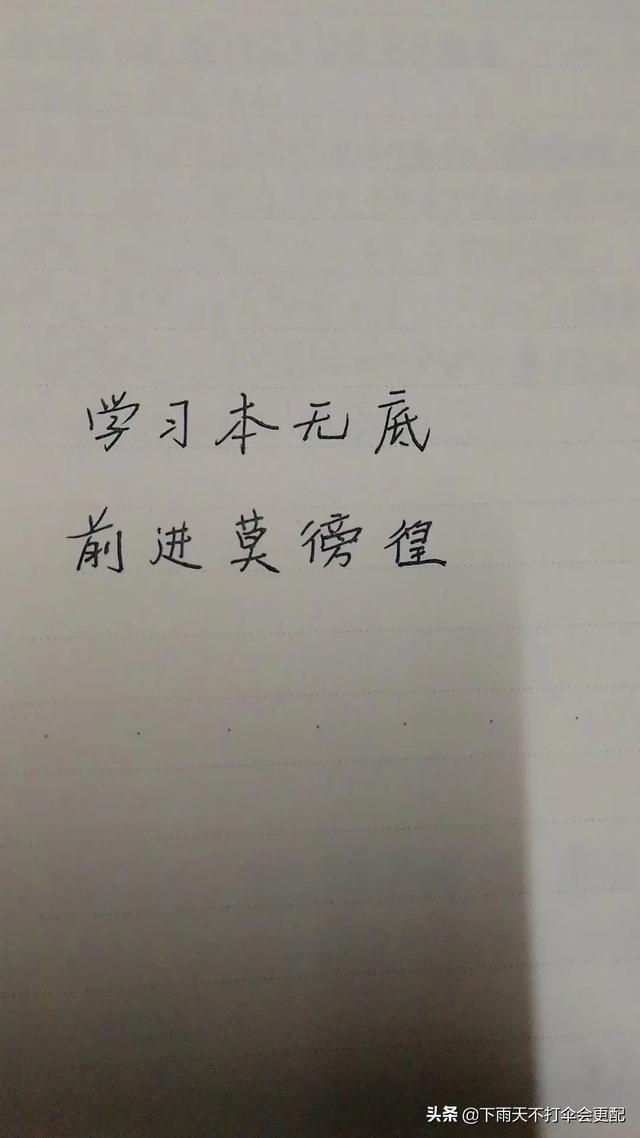 学习本无底
前进莫徬徨
头条 @下雨天不打伞会更配